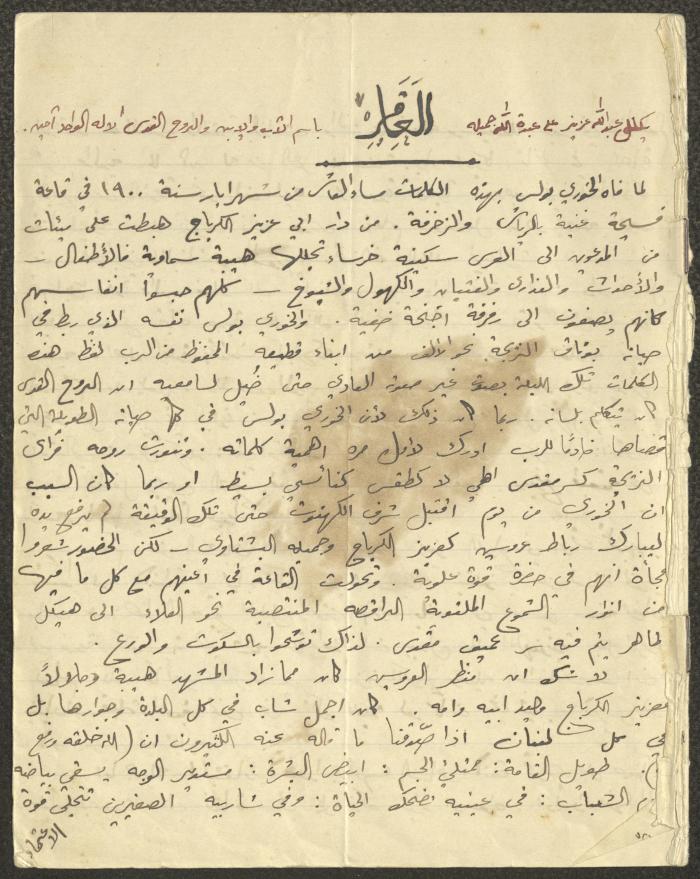 العَاقِر
يكلل عبد الله عزيز على عبدة الله جميله باسم الآب والابن والروح القدس الاله الواحد آمين.
لما فاه الخوري بولس بهذه الكلمات مساء العاشر من شهر ايار سنة ١٩٠٠ في قاعة
فسيحة غنية بالرياش والزخرفة. من دار ابي عزيز الكرباج هبطت على مئات
من المدعوين الى العرس سكينة خرساء تجللها هيبة سماوية فالأطفال –
والأحداث والعذارى والفتيان والكهول والشيوخ – كلهم حبسوا انفاسهم
كأنهم يصغون الى رفرفة اجنحة خفية. والخوري بولس نفسه الذي ربط في
حياته بوثاق الزيجة نحو الالف من ابناء قطيعه المحفوظ من الرب لفظ هذه
الكلمات تلك الليلة بصوت غير صوته العادي حتى خُيل لسامعيه ان الروح القدس
كان يتكلم بلسانه. ربما كان ذلك لأن الخوري بولس في كل حياته الطويلة التي
قضاها خادمًا للرب ادرك لأول مره اهمية كلماته. وتنورت روحه فرأى
الزيجة كسر مقدس الهي لا كطقس كنائسي بسيط او ربما كان السبب
ان الخوري من يوم اقتبل شرف الكهنوت حتى تلك الدقيقة لم يرفع يده
ليبارك رباط عروسين كعزيز الكرباج وجميله البشتاوي – لكن الحضور شعروا
فجأة انهم في حضرة قوة علوية. وتحولت القاعة في اعينهم مع كل ما فيها
من انوار الشموع الملتوية الراقصه المنتصبة نحو العلاء الى هيكل
طاهر يتم فيه سر عميق مقدس. لذاك توشحوا بالسكوت والورع.
لا شك ان منظر العروسين كان مما زاد المشهد هيبة وجلالاً
فعزيز الكرباج وحيد ابيه وامه. كان اجمل شاب في كل البلدة وجوارها بل
في كل لبنان اذا صدّقنا ما قاله عنه الكثيرون ان (الله خلقه ورفع
طويل القامة: ممتلئ الجسم: ابيض البشرة: مستدير الوجه يسقي بياضه
الشباب: في عينيه تضحك الحياة: وفي شاربيه الصغيرين تتجلى قوة
الاعتماد